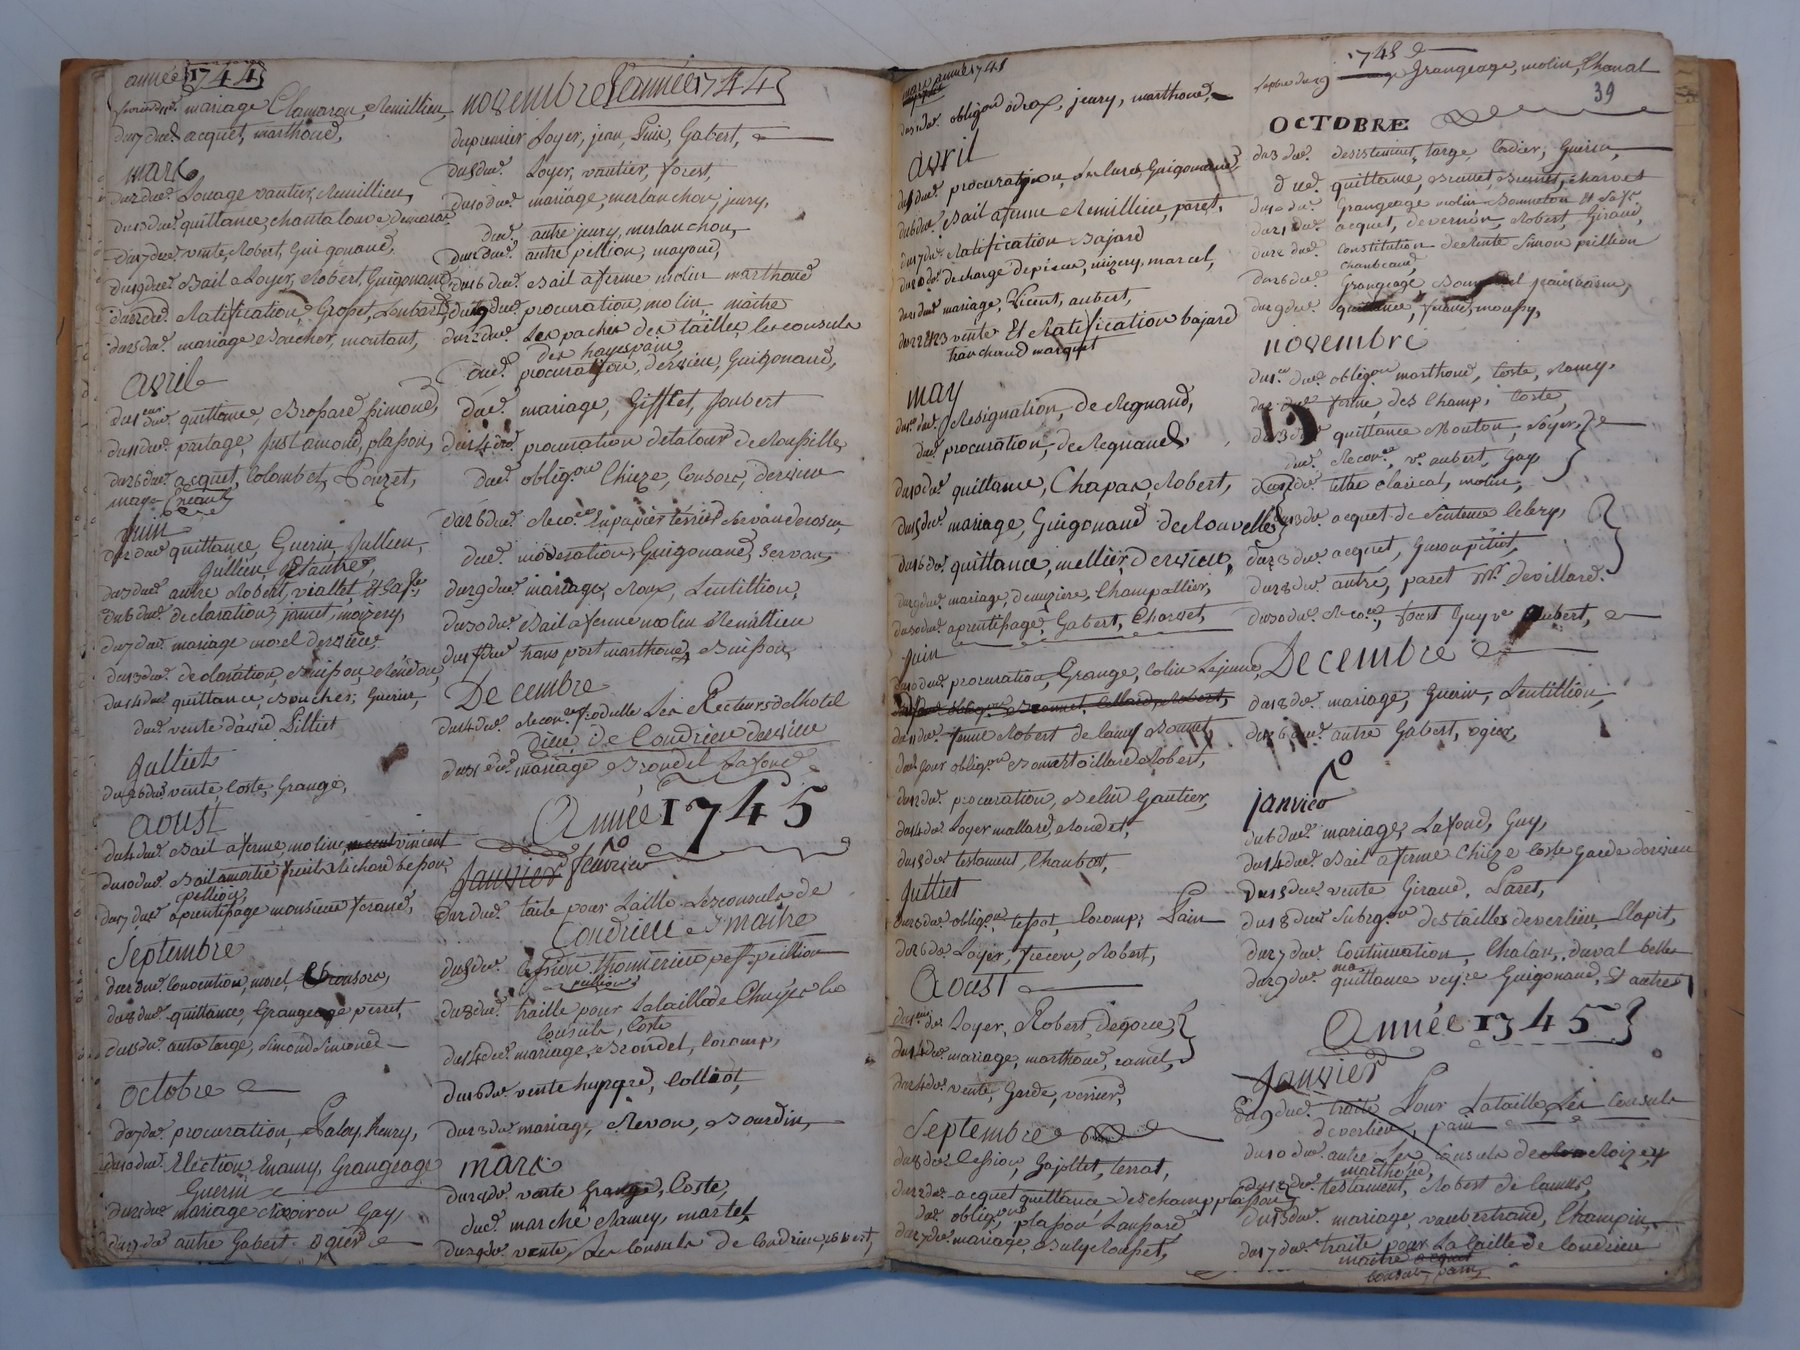 année 1744
mariage Clamaron, Remillieu,
du 17 dud. acquet, marthoud,
mars
du 2 dud. Louage vantier, Remillieu,
du 13 dud. quittance, chantalouve
du 17 dud. vente, Robert, Guigonand,
du 19 dud. Bail a Loyer, Robert, Guigonand
du 22 dud. Ratification Groset, Loubard,
du 25 dud. mariage Boucher, montant,
avril
du 1er dud. quittance, Brossard, simond,
du 11 dud. partage, Just amond, plasson,
du 26 dud. acquet, Colombet, Pouzet,
may
juin
du 2 dud. quittance, Guerin, Jullien,
Jullien, Et autres,
autre Robert, viallet,
du 6 dud. declaration, jamet, moizery,
du 7 dud. mariage morel dervieu
du 13 dud. declaration, Buisson,
du 14 dud. quittance, Boucher, Guerin,
dud. vente david Pilliet
Julliet
du 26 dud. vente, Coste, Grange,
aoust
du 4 dud. Bail a ferme, molin, vincent
du 10 dud.
pellion,
du 17 dud. aprentissage monsieur ferand,
Septembre
du 2 dud. Convention, morel,
du 8 dud. quittance, Grangeage perret,
du 15 dud. autre targe, Simond Simoned
octobre
du 7 dud. procuration, Paloy, henry,
du 10 dud. Election, Enamy, Grangeage
Guerin
du 21 dud. mariage Gay,
du 27 dud. autre Gabert, ogier
novembre année 1744
du premier Loyer, jean, Puis, Gabert,
du 5 dud. Loyer, vantier, forest,
du 10 dud. mariage, merlanchon, jeury,
dud. autre jeury, merlanchon,
autre pellion, mayoud,
du 16 dud. Bail a ferme molin marthoud
du 19 dud. procuration, molin, maitre
du 22 dud. Les paches des tailles, les consuls
des hayes pain
dud. procuration, dervieu, Guigonand,
dud. mariage, Gifflet, Joubert
du 24 dud. procuration delatour de Roussille
dud. oblig.on Chieze, Consors, dervieu
du 26 dud.
dud. moderation, Guigonand, Servan,
du 29 dud. mariage, Roux, Lentillion,
du 30 dud. Bail a ferme molin Remillieu
transport marthoud, Buisson,
Decembre
du 14 dud. Les Recteurs de lhotel
dieu de Condrieu dervieu
du 31 dud. mariage Brondel Lafond
Année 1745
Janvier fevrier
du 2 dud. taite pour Taille Les consuls de
Condrieu & maitre
du 5 dud.
du 8 dud. traille pour Lataille de Chuyer les
Consuls, Coste
du 14 dud. mariage, Brondel, Coromp,
du 16 dud. vente, Colliot,
du 23 dud. mariage, Revon, Bourdin,
mars
du 25 dud. vente Grange, Coste,
dud. marche Ramey, martel,
du 29 dud. vente, Les Consuls de Condrieu, Robert,
mars année 1745
du 31 dud. oblig.on odrox, jeury, marthoud,
avril
du 5 dud. procuration, Guigonand
du 6 dud. Bail a ferme Remillieu, paret,
du 17 dud. Ratification Bajard
du 20 dud. decharge de pieces, mizery, marcel,
du 21 dud. mariage, Vicent, aubert,
du 22 & 23 vente Et Ratification bajard
tranchand marquet
may
Resignation, de Regnaud,
dud. procuration, de Regnaud,
du 10 dud. quittance, Chapas, Robert,
du 15 dud. mariage, Guigonand de Rouvelle
du 16 dud. quittance, mellier, dervieu,
du 29 dud. mariage, demeziere, Champallier,
du 30 dud. aprentissage, Gabert, Chorvet,
juin
du 10 dud. procuration, Grange, Colin Lejeune,
du 11 dud. ferme Robert de Lainy Bonnet,
dud. jour oblig.on Bonnet Robert,
du 12 dud. procuration, Belin Gautier,
du 14 dud. Loyer mallard, Rondet,
du 15 dud. testament, Chanbost,
Julliet
du 25 dud. oblig.on tessot, Coromp, Pain
du 26 dud. Loyer, Robert,
Aoust
du 1er dud. Loyer, Robert, degorce,
du 14 dud. mariage, marthoud, ramel,
du 24 dud. vente, Garde, verrier,
Septembre
du 8 dud. Cession, Gajollet, terrat,
du 22 dud. acquet quittance deschamp, plasson,
dud. oblig.on plasson, Laussard
du 27 dud. mariage, Rousset,
1745
Grangeage, molin, Chanal
39
OCTOBRE
du 3 dud. desistement, targe, Cadier, Guerin,
dud. quittance, Brunet, Brunet, charvet
du 10 dud. Grangeage molin Bonneton
du 21 dud. acquet, devernon, Robert, Giraud,
du 22 dud. constitution de Rente Simon pellion
chanbeaud,
du 26 dud. Grangeage
du 29 dud. quittance, ferand, moussy,
novembre
du 1er dud. oblig.on marthoud, Coste, Ramey,
ferme, des Champ, Coste,
du 3 dud. quittance Mouton, Loyer,
dud. Recon.ce ve. aubert, Gay
titre clerical, molin,
du 13 dud. acquet de Sentence Celery,
du 23 dud. acquet, Guron pitiot,
du 28 dud. autre, paret Mr. devillard.
du 30 dud. Guy ve aubert,
Decembre
du 18 dud. mariage, Guerin, Lentillion,
du 26 dud. autre Gabert, ogier,
janvier
du 6 dud. mariage, Lafond, Guy,
du 14 dud. Bail a ferme Chieze Coste Garde dervieu
du 15 dud. vente Giraud, Paret,
du 18 dud. Subrg.on des tailles deverlieu, Clapit,
du 27 dud. Continuation, Chalan, duval belle
du 29 dud. quittance Guigonand, Et autres
Année 1745
Janvier
du 9 dud. traite Pour Lataille Les Consuls
deverlieu, pain
du 10 dud. autre Les Consuls de Roizey
marthoud,
du 12 dud. testament, Robert de Lainee,
du 13 dud. mariage, vaubertrand, Champin,
du 17 dud. traite pour La taille de Condrieu
maitre acquet
consuls, pain,